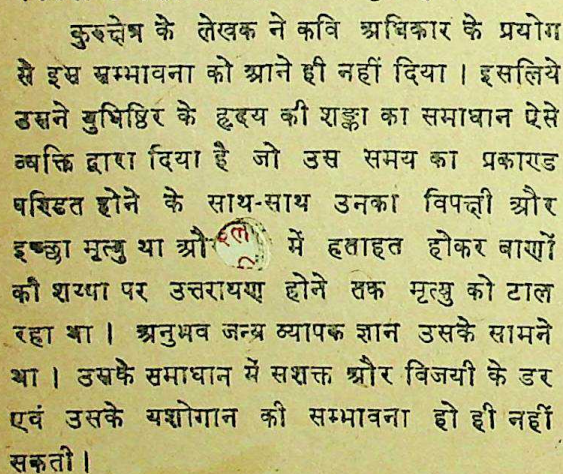 कुरुक्षेत्र के लेखक ने कवि अधिकार के प्रयोग
से इस सम्भावना को आने ही नहीं दिया । इसलिये
उसने युधिष्ठिर के हृदय की शङ्का का समाधान ऐसे
व्यक्ति द्वारा दिया है जो उस समय का प्रकाण्ड
पण्डित होने के साथ-साथ उनका विपक्षी और
इच्छा मृत्यु था औ में हताहत होकर बाणों
की शय्या पर उत्तरायण होने तक मृत्यु को टाल
रहा था । अनुभव जन्य व्यापक ज्ञान उसके सामने
था । उसके समाधान में सशक्त और विजयी के डर
एवं उसके यशोगान की सम्भावना हो ही नहीं
सकती ।